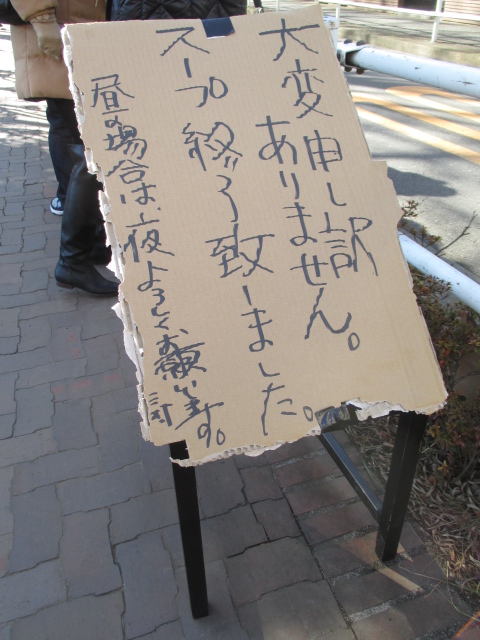 大変申し訳
ありません。
スープ終了致しました。
昼の場合は、夜よろしくお願いします。